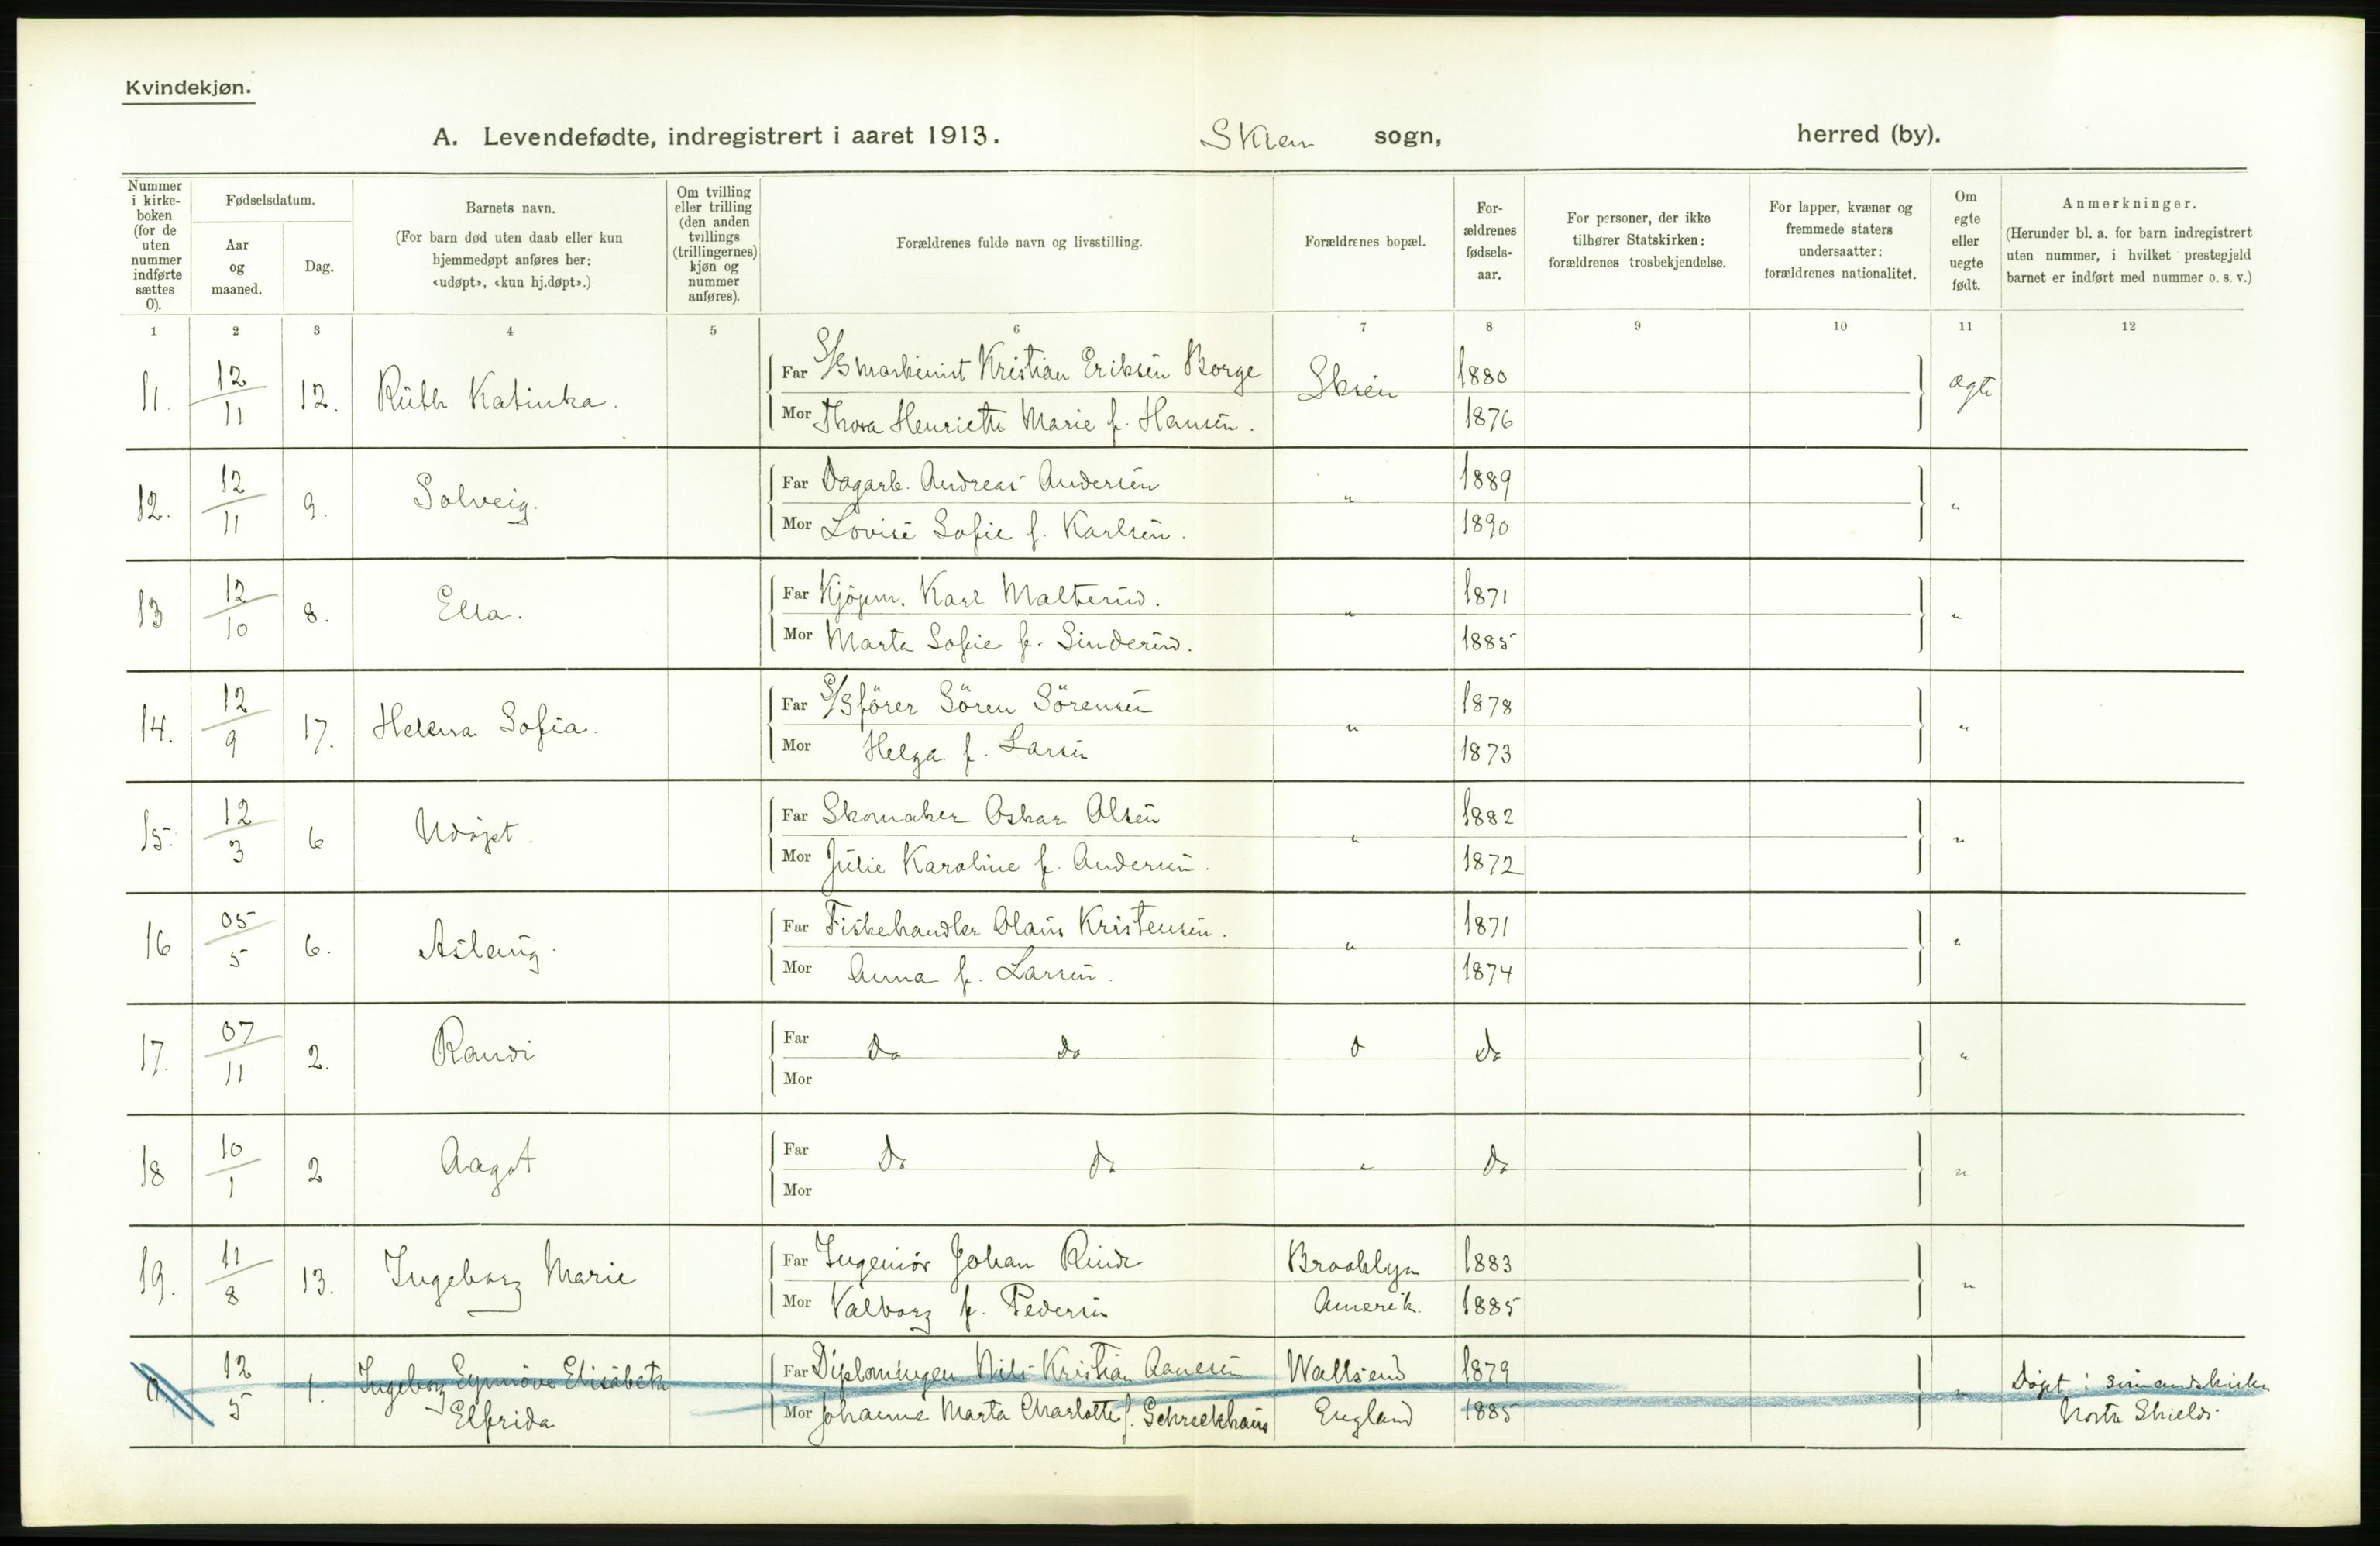 Kvindekjøn.
A. Levendefødte, indregistrert i aaret 1913. Skien sogn, herred (by).
Nummer i kirke-boken (for de uten nummer indførte sættes 0).
Fødselsdatum.
Aar og maaned.
Dag.
Barnets navn.
(For barn død uten daab eller kun hjemmedøpt anføres her: «udøpt», «kun hj.døpt».)
Om tvilling eller trilling (den anden tvillings (trillingernes) kjøn og nummer anføres).
Forældrenes fulde navn og livsstilling.
Forældrenes bopæl.
For-ældrenes fødsels-aar.
For personer, der ikke tilhører Statskirken: forældrenes trosbekjendelse.
For lapper, kvæner og fremmede staters undersaatter: forældrenes nationalitet.
Om egte eller uegte født.
Anmerkninger.
(Herunder bl. a. for barn indregistrert uten nummer, i hvilket prestegjeld barnet er indført med nummer o. s. v.)
1 2 3 4 5 6 7 8 9 10 11 12
11. 12/11 12. Ruth Katinka. Far S/S maskinist Kristian Eriksen Borge Skien 1880 ægte
Mor Thora Henriette Marie f. Hansen. 1876
12. 12/11 9. Solveig. Far Dagarb. Andreas Andersen " 1889 "
Mor Lovise Sofie f. Karlsen. 1890
13 12/10 8. Ella. Far Kjöpm. Karl Malterud. " 1871 "
Mor Marta Sofie f. Sinderud. 1885
14. 12/9 17. Helena Sofia. Far S/S förer Sören Sörensen " 1878 "
Mor Helga f. Larsen 1873
15. 12/3 6 Udøpt. Far Skomaker Oskar Olsen " 1882 "
Mor Julie Karoline f. Andersen. 1872
16 05/5 6. Aslaug. Far Fiskehandler Olaus Kristensen. " 1871 "
Mor Anna f. Larsen. 1874
17. 07/11 2. Randi Far do do d do "
Mor
18 10/1 2 Aagot Far do do " do "
Mor
19. 11/8 13. Ingeborg Marie Far Ingeniør Johan Rinde Brooklyn 1883 "
Mor Valborg f. Pedersen Amerik. 1885
0. 12/5 1. Ingeborg Synnöve Elisabeta Far Diplomingen Nils Kristian Aanesen Wallsend 1879 " Døpt i sömandskirken
Elfrida Mor Johanne Marta Charlotte f. Schreckhaus England 1885 North Shields.